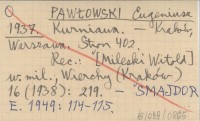 PAWŁOWSKI Eugeniusz
1937. Kurniawa. — Kraków,
Warszawa. Stron 402.
Rec.: [Mileski Witold]
w. mil., Wierchy (Kraków)
16 (1938): 219. — SMAJDOR
E. 1949: 114-115.